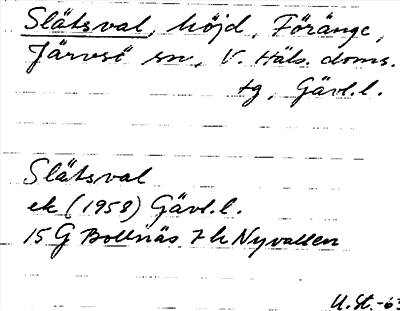 Slätsval, höjd, Föränge,
Järvsö sn, V. Häls. doms.
tg, Gävl.l.
Slätsval
ek (1958) Gävl.l.
15 G Bollnäs 7 h Nyvallen
U.St.-63